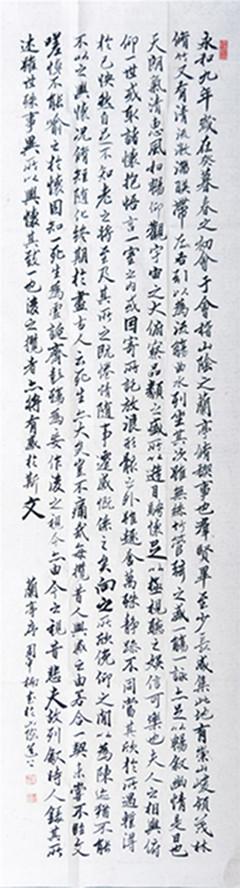 永和九年歲在癸暮春之初會于會稽山陰之蘭亭脩禊事也群賢畢至少長咸集此地有崇山峻領茂林
脩竹又有清流激湍映帶左右引以為流觴曲水列坐其次雖無絲竹管弦之盛一觴一詠亦足以暢敘幽情是日也
天朗氣清惠風和暢仰觀宇宙之大俯察品類之盛所以遊目騁懷足以極視聽之娛信可樂也夫人之相與俯
仰一世或取諸懷抱悟言一室之內或因寄所託放浪形骸之外雖趣舍萬殊靜躁不同當其欣於所遇暫得
於己怏然自足不知老之將至及其所之既惓情隨事遷感慨係之矣向之所欣俛仰之間以為陳迹猶不能
不以之興懷況脩短隨化終期於盡古人云死生亦大矣豈不痛哉每攬昔人興感之由若合一契未嘗不臨文
嗟悼不能喻之於懷固知一死生為虛誕齊彭殤為妄作後之視今亦由今之視昔悲夫故列敘時人錄其所
述雖世殊事異所以興懷其致一也後之攬者亦將有感於斯文
蘭亭序